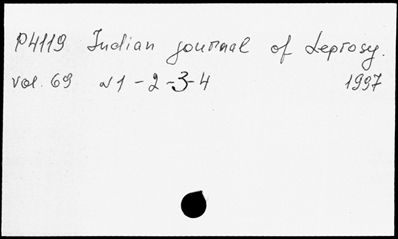 P4119 Indian journal of Leprosy.
vol. 69 N1-2-3-4 1997